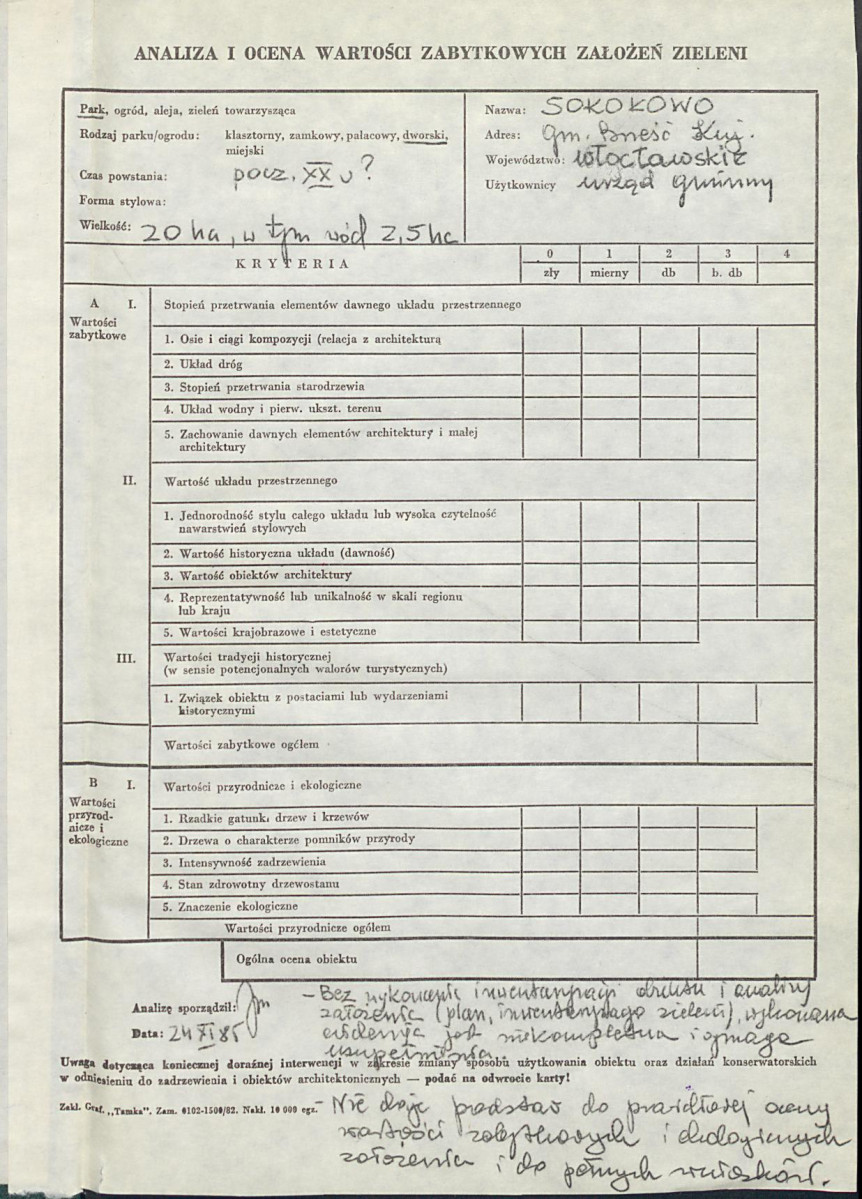 ANALIZA I OCENA WARTOŚCI ZABYTKOWYCH ZAŁOŻEŃ ZIELENI
Park, ogród, aleja, zieleń towarzysząca
Rodzaj parku/ogrodu: klasztorny, zamkowy, pałacowy, dworski,
miejski
Czas powstania: pocz. XX w?
Forma stylowa:
Wielkość: 20 ha, w tym wód 2,5 ha
Nazwa: SOKOŁOWO
Adres: gm. Brześć Kuj.
Województwo: włocławskie
Użytkownicy urząd gminny
KRYTERIA
0 1 2 3 4
zły mierny db b. db
A I. Stopień przetrwania elementów dawnego układu przestrzennego
Wartości
zabytkowe
1. Osie i ciągi kompozycji (relacja z architekturą
2. Układ dróg
3. Stopień przetrwania starodrzewia
4. Układ wodny i pierw. ukszt. terenu
5. Zachowanie dawnych elementów architektury i małej
architektury
II. Wartość układu przestrzennego
1. Jednorodność stylu całego układu lub wysoka czytelność
nawarstwień stylowych
2. Wartość historyczna układu (dawność)
3. Wartość obiektów architektury
4. Reprezentatywność lub unikalność w skali regionu
lub kraju
5. Wartości krajobrazowe i estetyczne
III. Wartości tradycji historycznej
(w sensie potencjonalnych walorów turystycznych)
1. Związek obiektu z postaciami lub wydarzeniami
historycznymi
Wartości zabytkowe ogółem
B I. Wartości przyrodnicze i ekologiczne
Wartości
przyrod-
nicze i
ekologiczne
1. Rzadkie gatunki drzew i krzewów
2. Drzewa o charakterze pomników przyrody
3. Intensywność zadrzewienia
4. Stan zdrowotny drzewostanu
5. Znaczenie ekologiczne
Wartości przyrodnicze ogółem
Ogólna ocena obiektu
Analizę sporządził:
Data: 24 XI 85
- Bez wykonania inwentaryzacji obiektu i analizy
założenia (plan, inwentaryzacja zieleni), wykonana
ewidencja jest niekompletna i wymaga
uzupełnienia.
Uwaga dotycząca koniecznej doraźnej interwencji w zakresie zmiany sposobu użytkowania obiektu oraz działań konserwatorskich
w odniesieniu do zadrzewienia i obiektów architektonicznych — podać na odwrocie karty!
Zakł. Graf. „Tamka". Zam. 0102-1500/82. Nakł. 10 000 egz.
- Nie daje podstaw do prawidłowej oceny
wartości zabytkowych i ekologicznych
założenia i do pełnych wniosków.